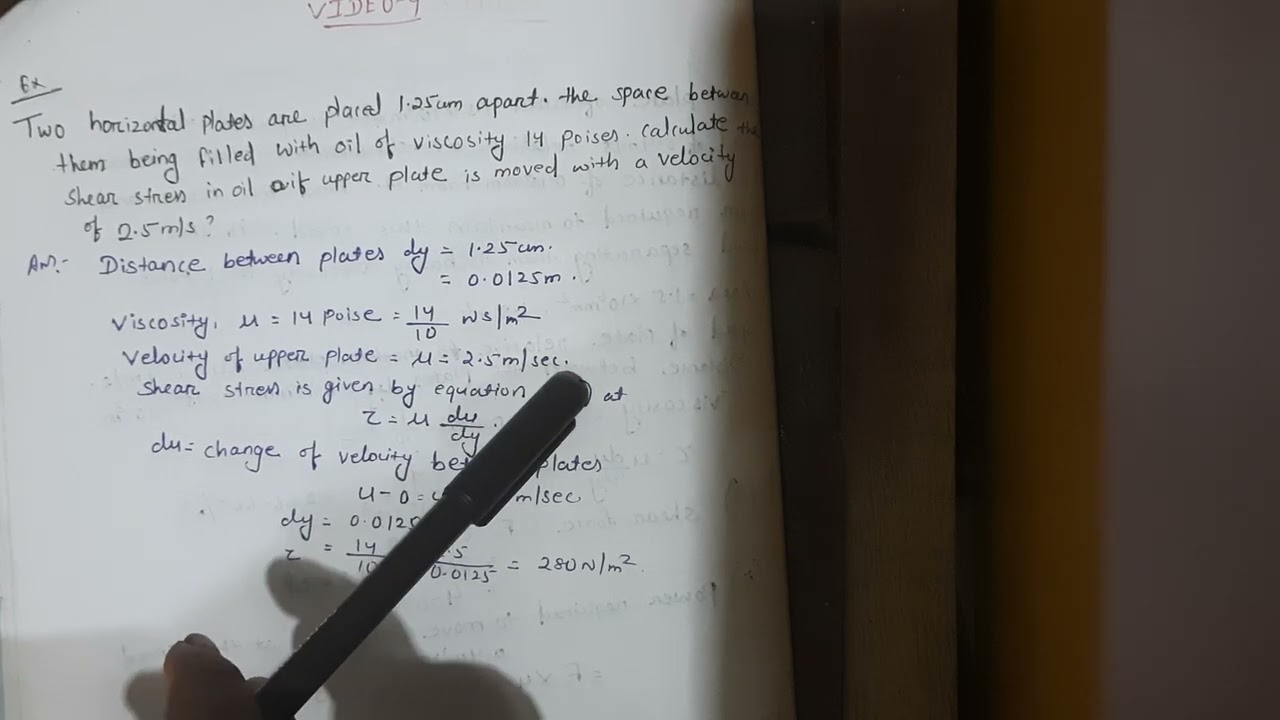 VIDEO-9
Ex
Two horizontal plates are placed 1.25cm apart. the space between
them being filled with oil of viscosity 14 poises. calculate the
shear stress in oil if upper plate is moved with a velocity
of 2.5m/s?
Ans:- Distance between plates dy = 1.25cm.
= 0.0125m.
Viscosity, μ = 14 poise = 14/10 Ns/m²
Velocity of upper plate = u = 2.5m/sec.
Shear stress is given by equation at
τ = μ du/dy.
du = change of velocity plates
u-0 = m/sec
dy = 0.0125
τ = 14/10 .5/0.0125 = 280N/m².